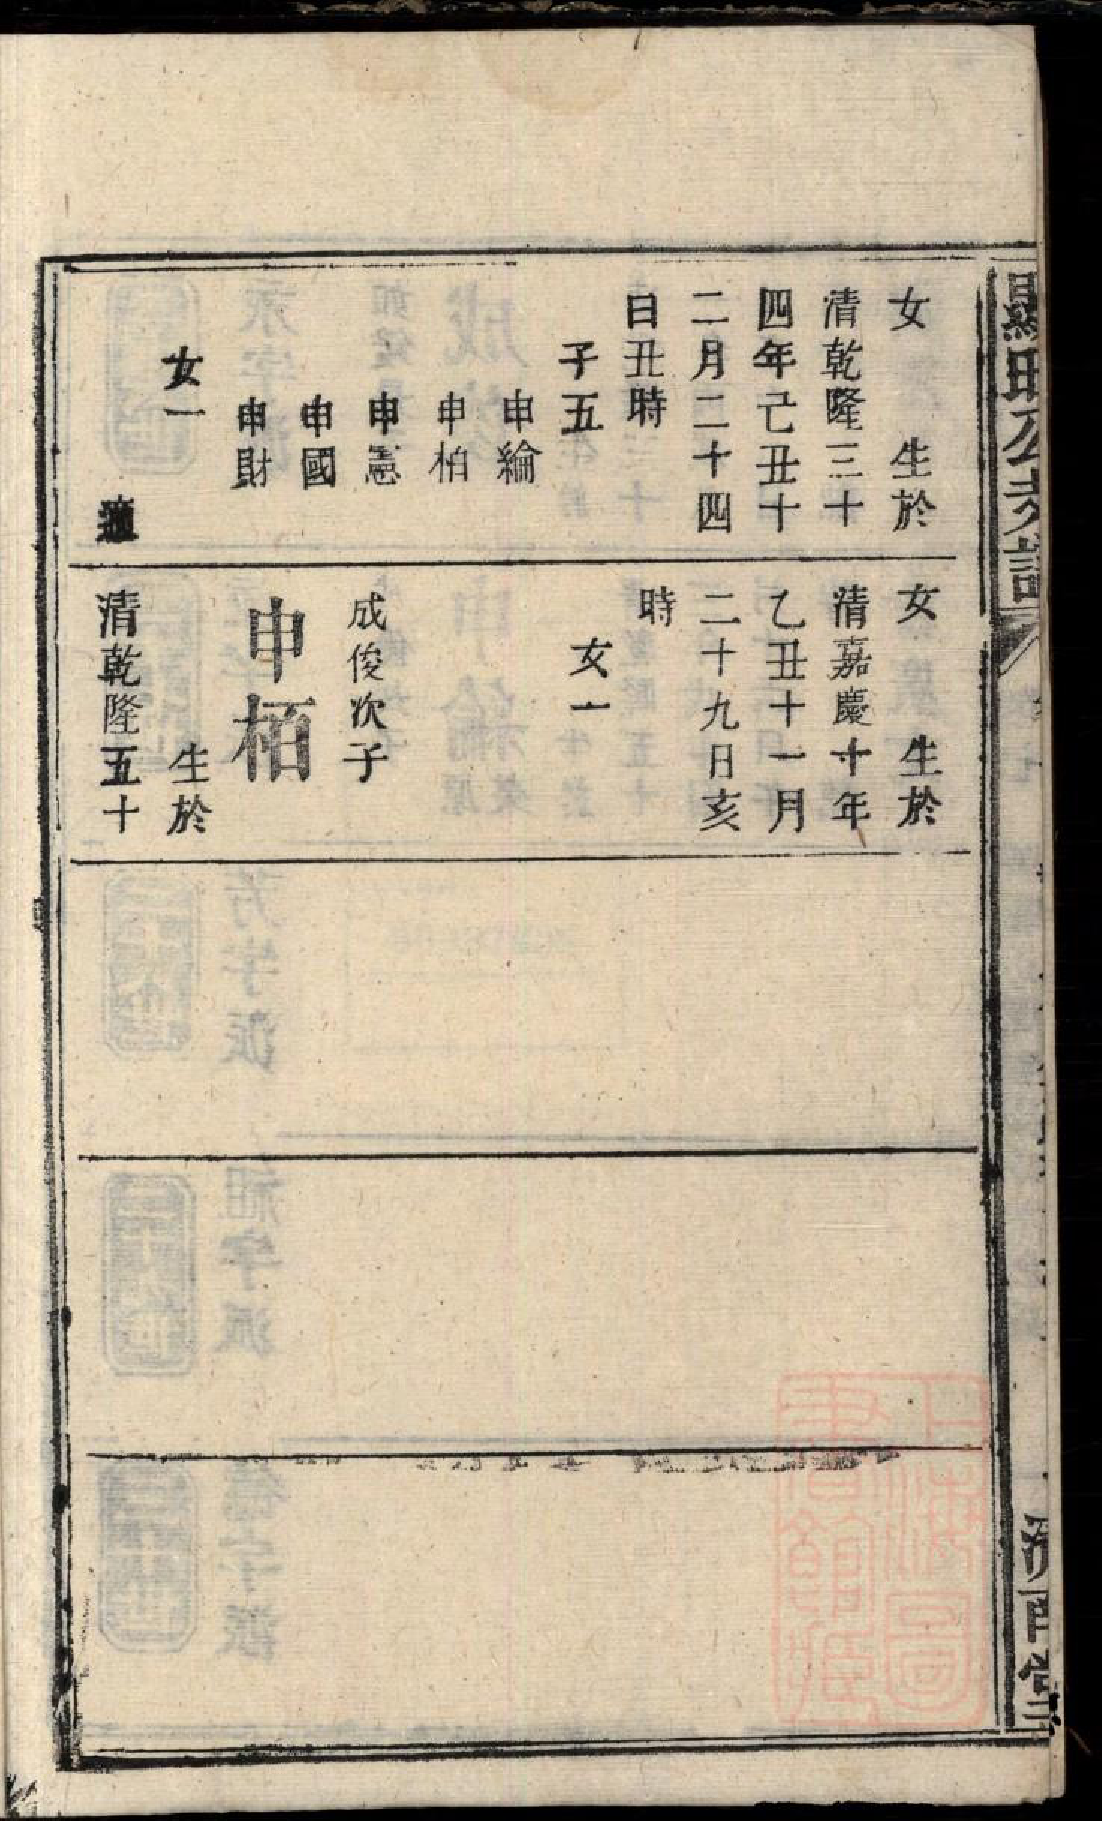 女　生於
清乾隆三十
四年己丑十
二月二十四
日丑時
子五
申綸
申柏
申憲
申國
申財
女一
適
女　生於
清嘉慶十年
乙丑十一月
二十九日亥
時
女一
成俊次子
申栢
生於
清乾隆五十